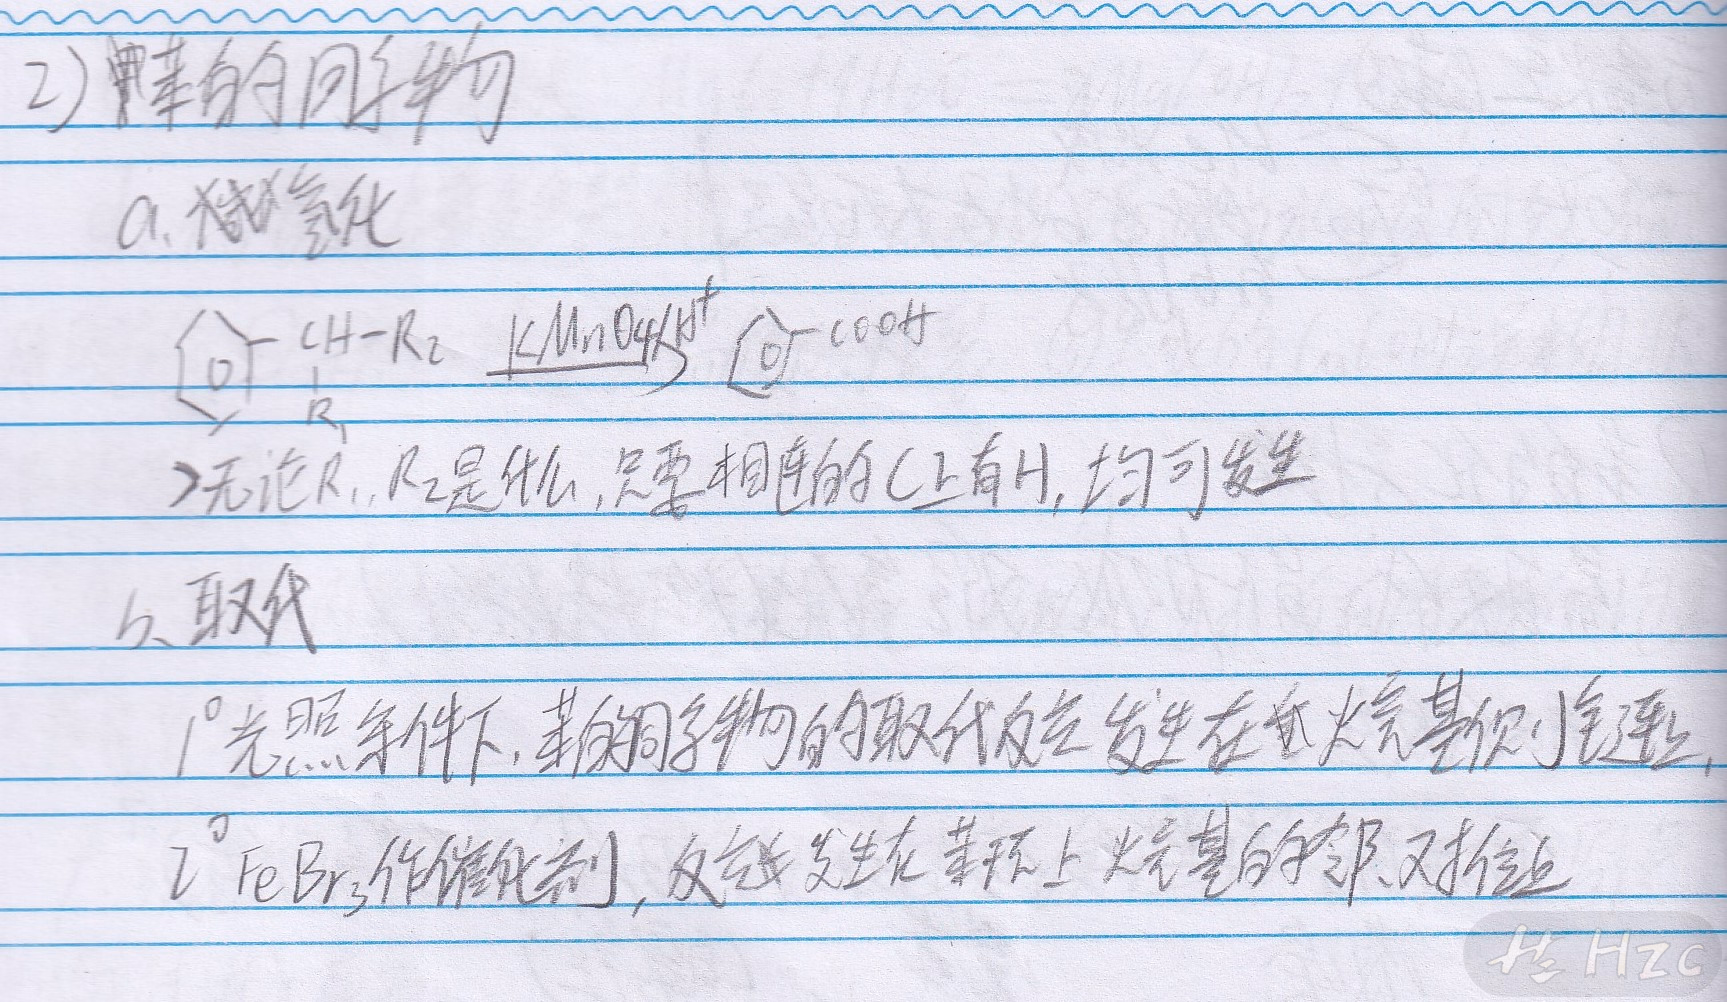 2) 苯的同系物
a. 氧化
CH-R₂ KMnO₄/H⁺ COOH
R₁
>无论R₁、R₂是什么,只要相连的C上有H,均可发生
b、取代
1°光照条件下,苯的同系物的取代反应发生在烷基侧链上,
2°FeBr₃作催化剂,反应发生在苯环上烷基的邻、对位上
HZC